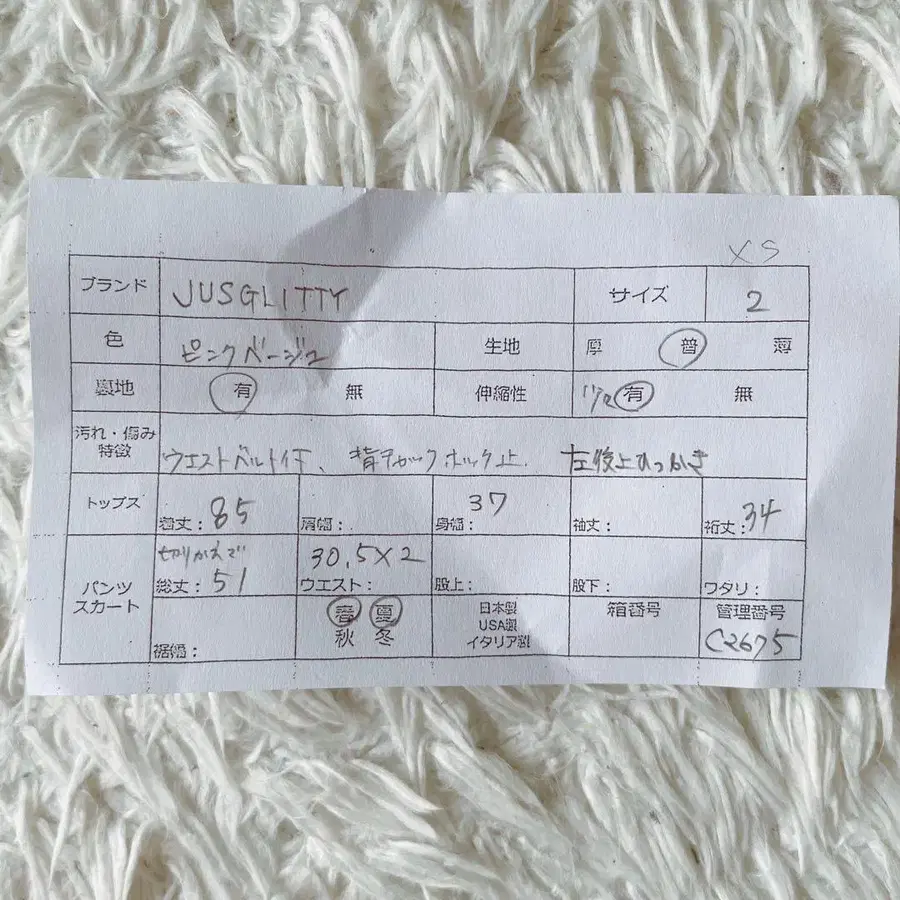 XS
ブランド JUSGLITTY サイズ 2
色 ピンクベージュ 生地 厚 普 薄
裏地 有 無 伸縮性 有 無
汚れ・傷み 特徴 ウエストベルト付、背中ホック止. 左後上ひっかき
トップス 着丈: 85 肩幅: 身幅: 37 袖丈: 裄丈: 34
パンツ スカート 切りかえで 総丈: 51 30.5×2 ウエスト: 股上: 股下: ワタリ:
裾幅: 春 夏 秋 冬 日本製 USA製 イタリア製 箱番号 管理番号 C2675